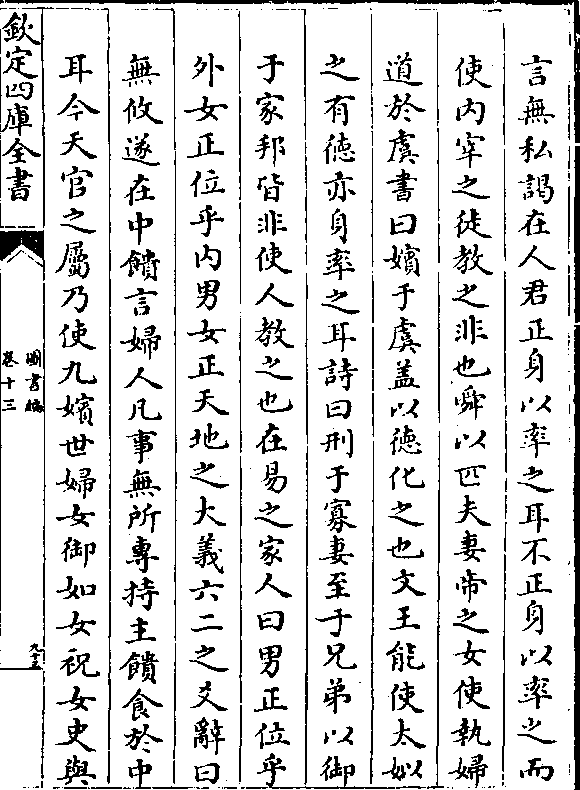 言無私謁在人君正身以率之耳不正身以率之而
使内宰之徒教之非也舜以匹夫妻帝之女使執婦
道於虞書曰嬪于虞盖以徳化之也文王能使太姒
之有徳亦身率之耳詩曰刑于寡妻至于兄弟以御
于家邦皆非使人教之也在易之家人曰男正位乎
外女正位乎内男女正天地之大義六二之爻辭曰
無攸遂在中饋言婦人凡事無所專持主饋食於中
耳今天官之屬乃使九嬪世婦女御如女祝女史與
欽定四庫全書
圖書編
卷十三
九十三